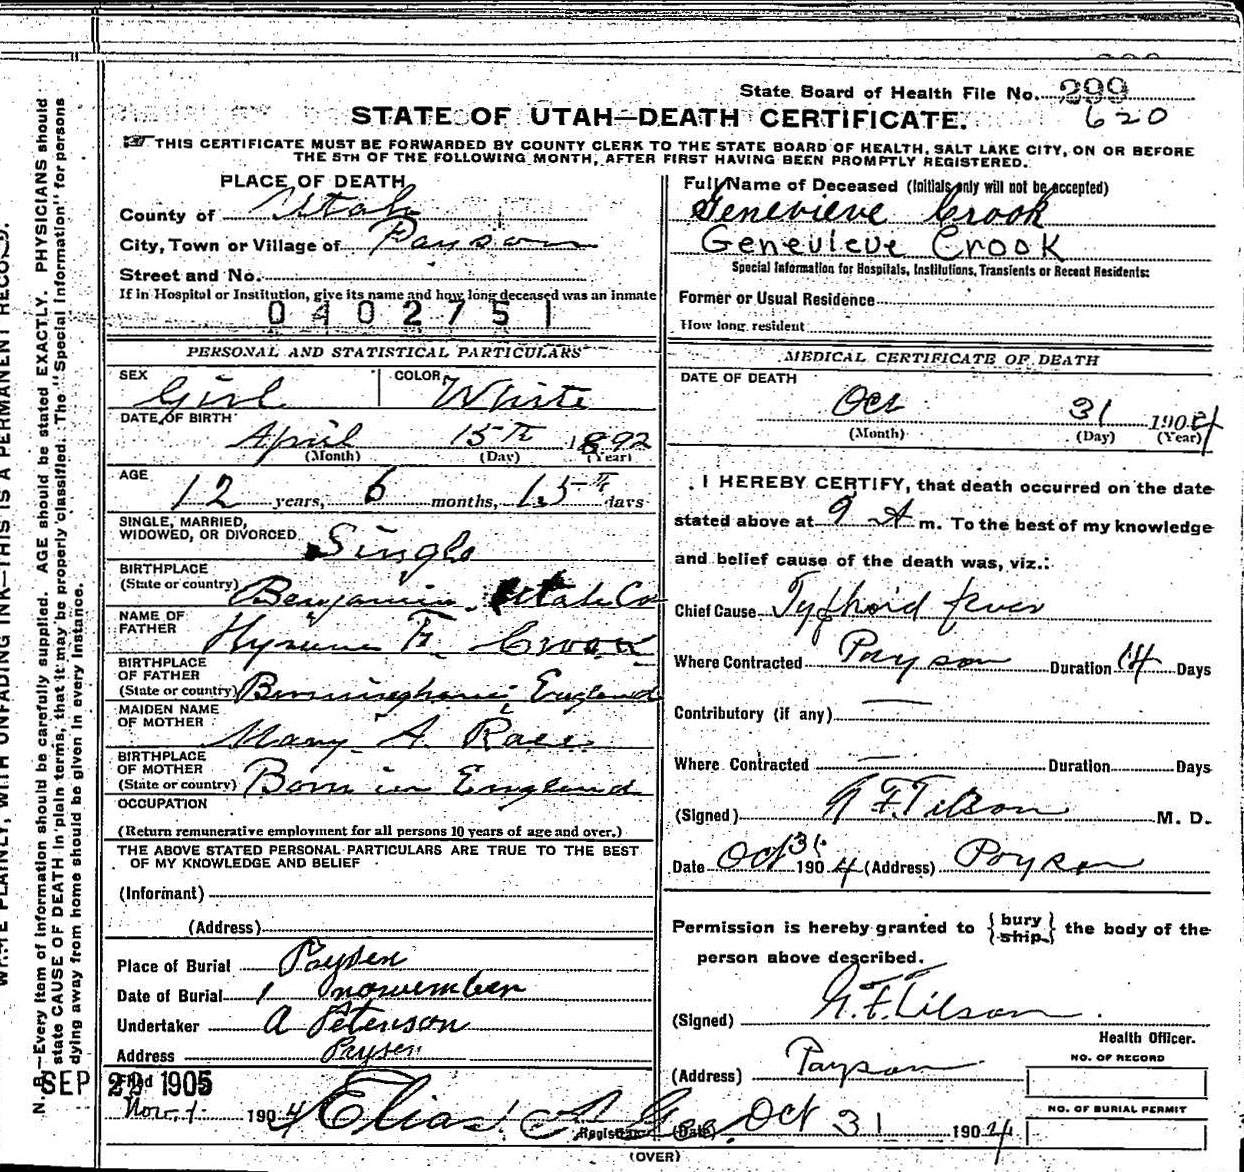 State Board of Health File No. 299
620
STATE OF UTAH—DEATH CERTIFICATE.
THIS CERTIFICATE MUST BE FORWARDED BY COUNTY CLERK TO THE STATE BOARD OF HEALTH, SALT LAKE CITY, ON OR BEFORE
THE 5TH OF THE FOLLOWING MONTH, AFTER FIRST HAVING BEEN PROMPTLY REGISTERED.
PLACE OF DEATH
County of Utah
City, Town or Village of Payson
Street and No.
If in Hospital or Institution, give its name and how long deceased was an inmate
0402751
Full Name of Deceased (Initials only will not be accepted)
Genevieve Crook
Genevieve Crook
Special Information for Hospitals, Institutions, Transients or Recent Residents:
Former or Usual Residence
How long resident
PERSONAL AND STATISTICAL PARTICULARS
SEX Girl COLOR White
DATE OF BIRTH
April 15th 1892
(Month) (Day) (Year)
AGE
12 years, 6 months, 15th days
SINGLE, MARRIED,
WIDOWED, OR DIVORCED Single
BIRTHPLACE
(State or country) Benjamin Utah Co
NAME OF
FATHER Hyrum F. Crook
BIRTHPLACE
OF FATHER
(State or country) Birmingham England
MAIDEN NAME
OF MOTHER Mary A.
BIRTHPLACE
OF MOTHER
(State or country) Born in England
OCCUPATION
(Return remunerative employment for all persons 10 years of age and over.)
THE ABOVE STATED PERSONAL PARTICULARS ARE TRUE TO THE BEST
OF MY KNOWLEDGE AND BELIEF
(Informant)
(Address)
Place of Burial Paysen
Date of Burial 1 nowember
Undertaker A Petenson
Address Paysen
SEP 22 1905
Filed
Nov. 1 1904 Elias A. Gee.
Registrar
MEDICAL CERTIFICATE OF DEATH
DATE OF DEATH
Oct 31 1904
(Month) (Day) (Year)
I HEREBY CERTIFY, that death occurred on the date
stated above at 9 A m. To the best of my knowledge
and belief cause of the death was, viz.:
Chief Cause Typhoid fever
Where Contracted Payson Duration 14 Days
Contributory (if any) —
Where Contracted — Duration Days
(Signed) F. Tilson M. D.
Date Oct 31 1904 (Address) Payson
Permission is hereby granted to {bury ship} the body of the
person above described.
(Signed) F. Tilson
Health Officer.
(Address) Payson
(Date) Oct 31 1904
NO. OF RECORD
NO. OF BURIAL PERMIT
(OVER)
N. B.—Every item of information should be carefully supplied. AGE should be stated EXACTLY. PHYSICIANS should
state CAUSE OF DEATH in plain terms, that it may be properly classified. The "Special Information" for persons
dying away from home should be given in every instance.
PLAINLY, WITH UNFADING INK—THIS IS A PERMANENT RECORD.